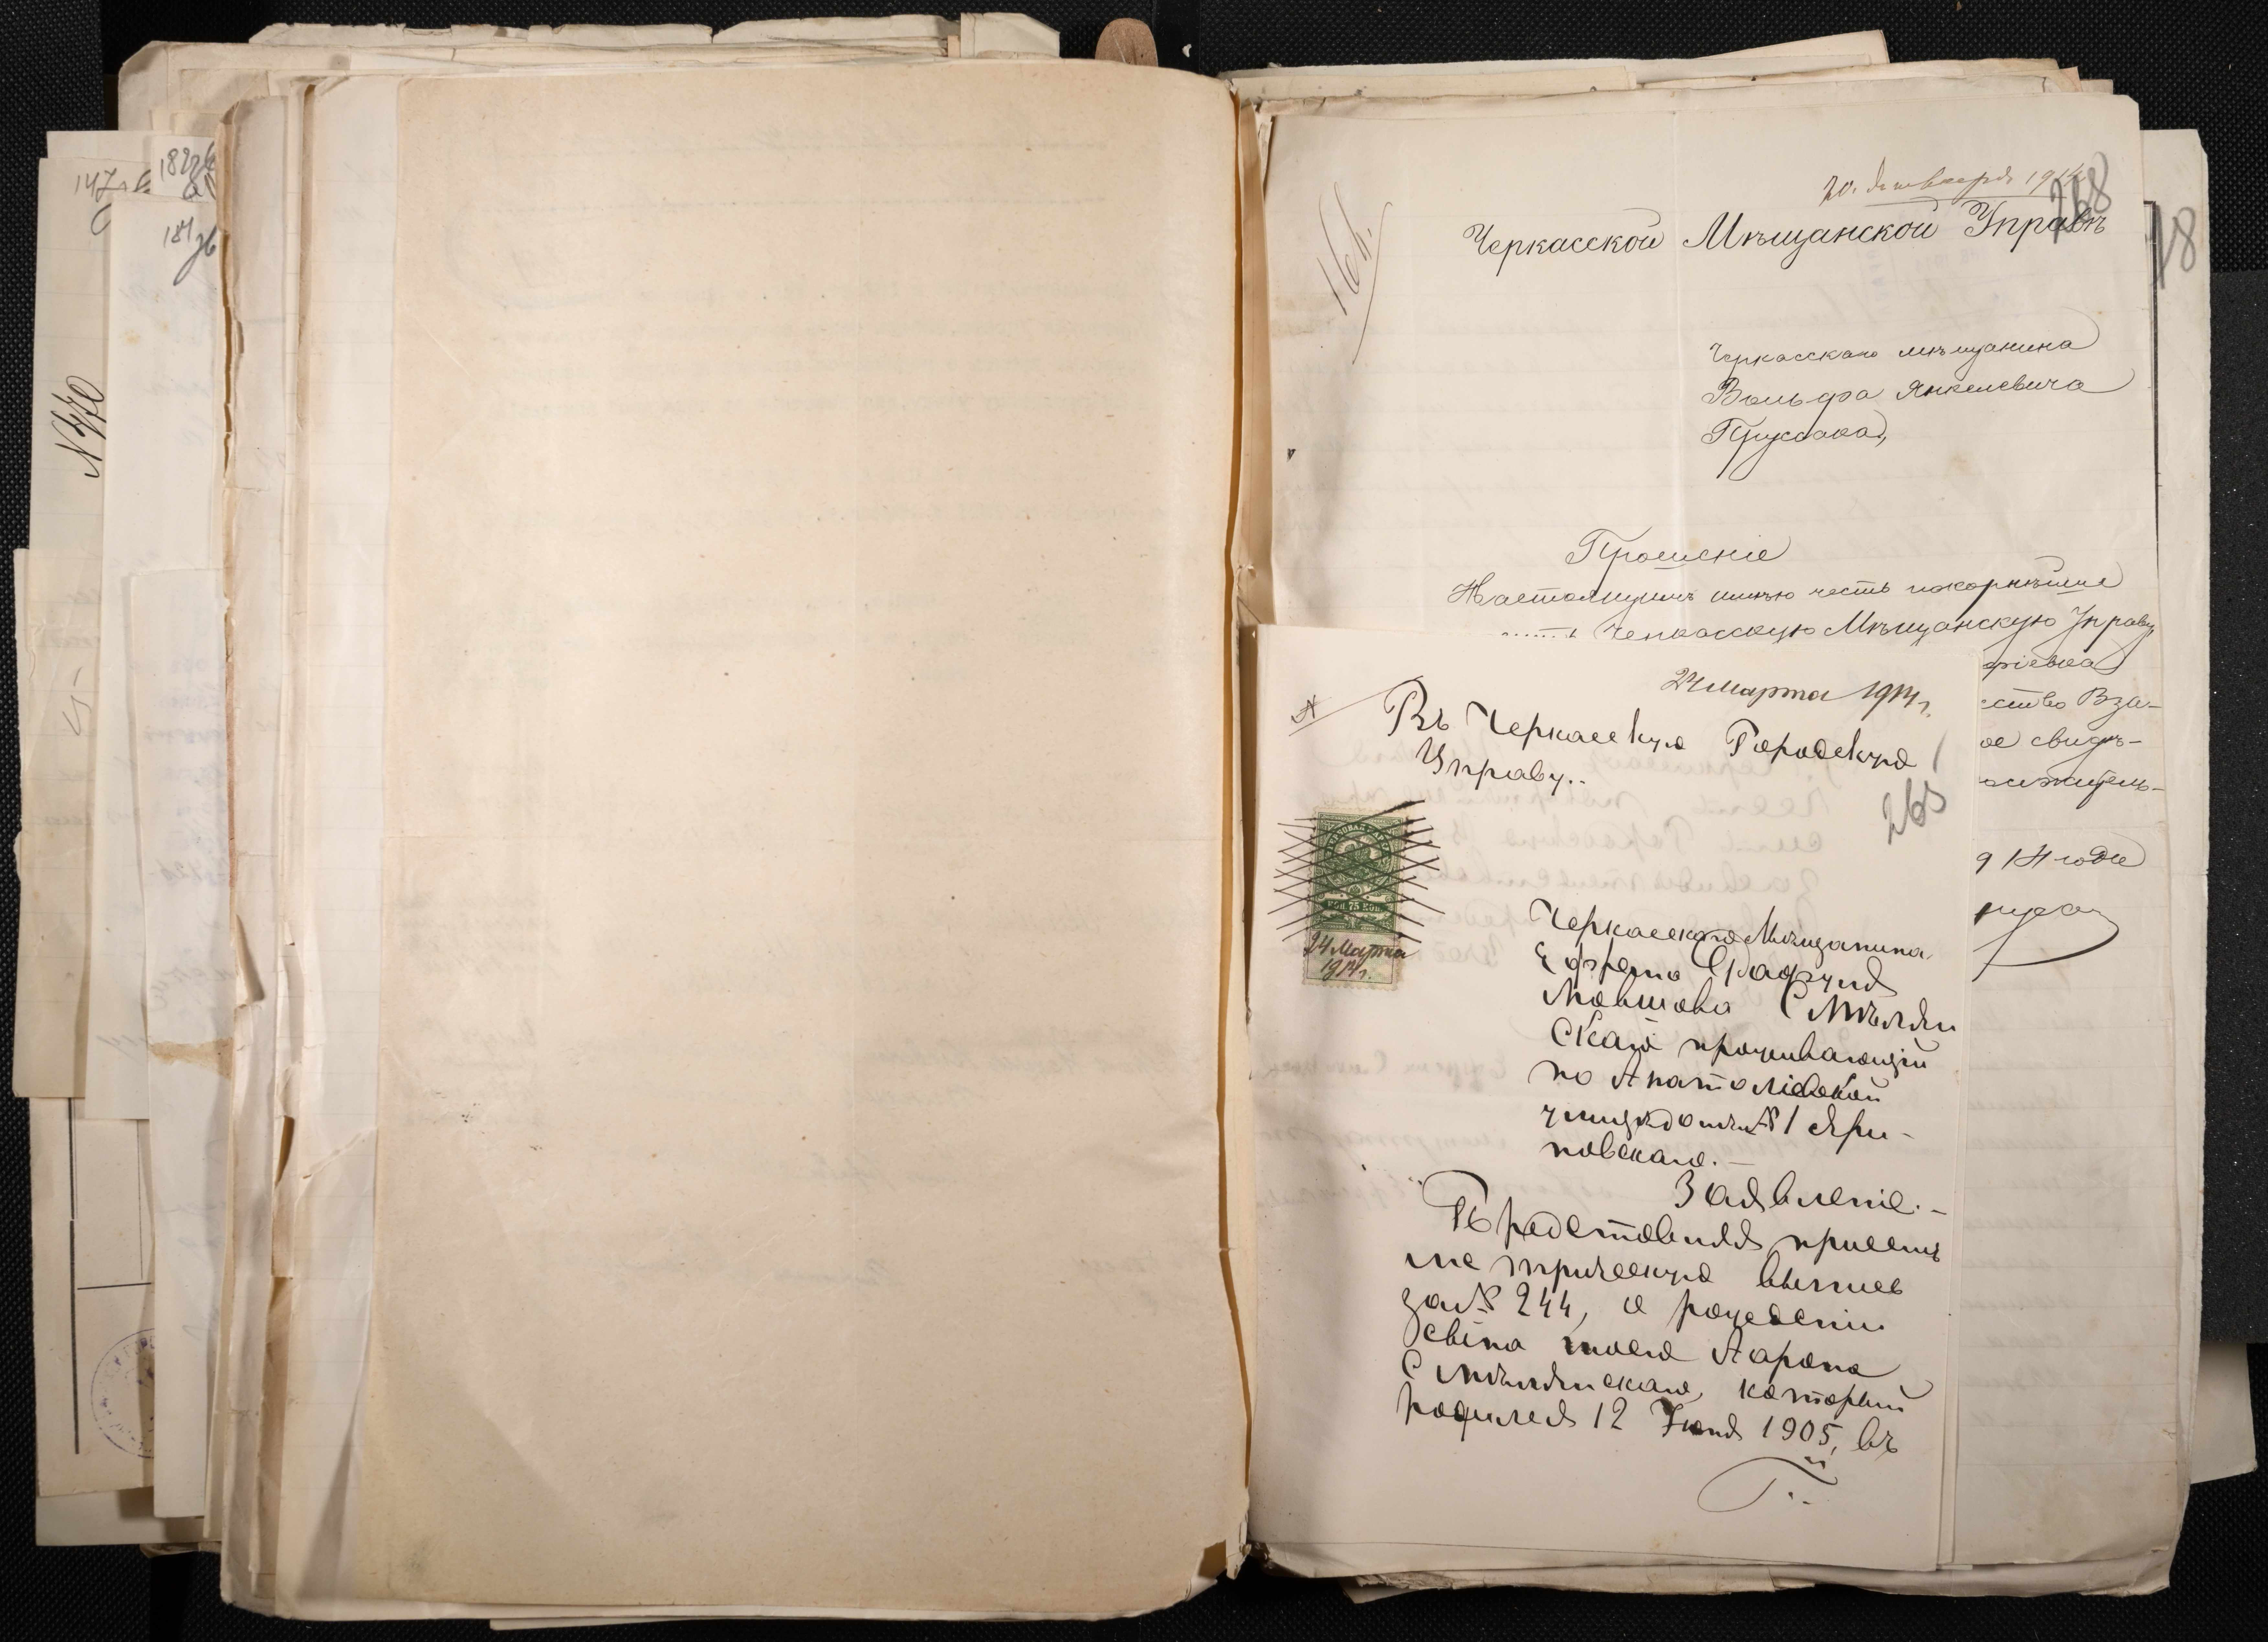 147
181
N 770
20. Января 1914
268
18
Черкасской Мѣщанской Управѣ
Черкасскаго мѣщанина
Вольфа Янкелевича
Пруссака,
Прошеніе
Настоящимъ имѣю честь покорнѣйше
Черкасскую Мѣщанскую Управу
ство Вза-
ое свидѣ-
9 14 года
24 марта 1914 г.
Въ Черкасскую Городскую
Управу..
265
КОП. 75 КОП.
24 Марта
1914 г.
Черкасскаго Мѣщанина
Мовшова Смѣлян
скаго проживающій
по Анатоліевской
улицѣ домъ № 1 Яри-
новскаго.-
Заявленіе.-
Представляя присемъ
метрическую выпись
за № 244, о рождении
сына моего Арона
Смѣлянскаго, который
родился 12 Іюня 1905, въ
Г..